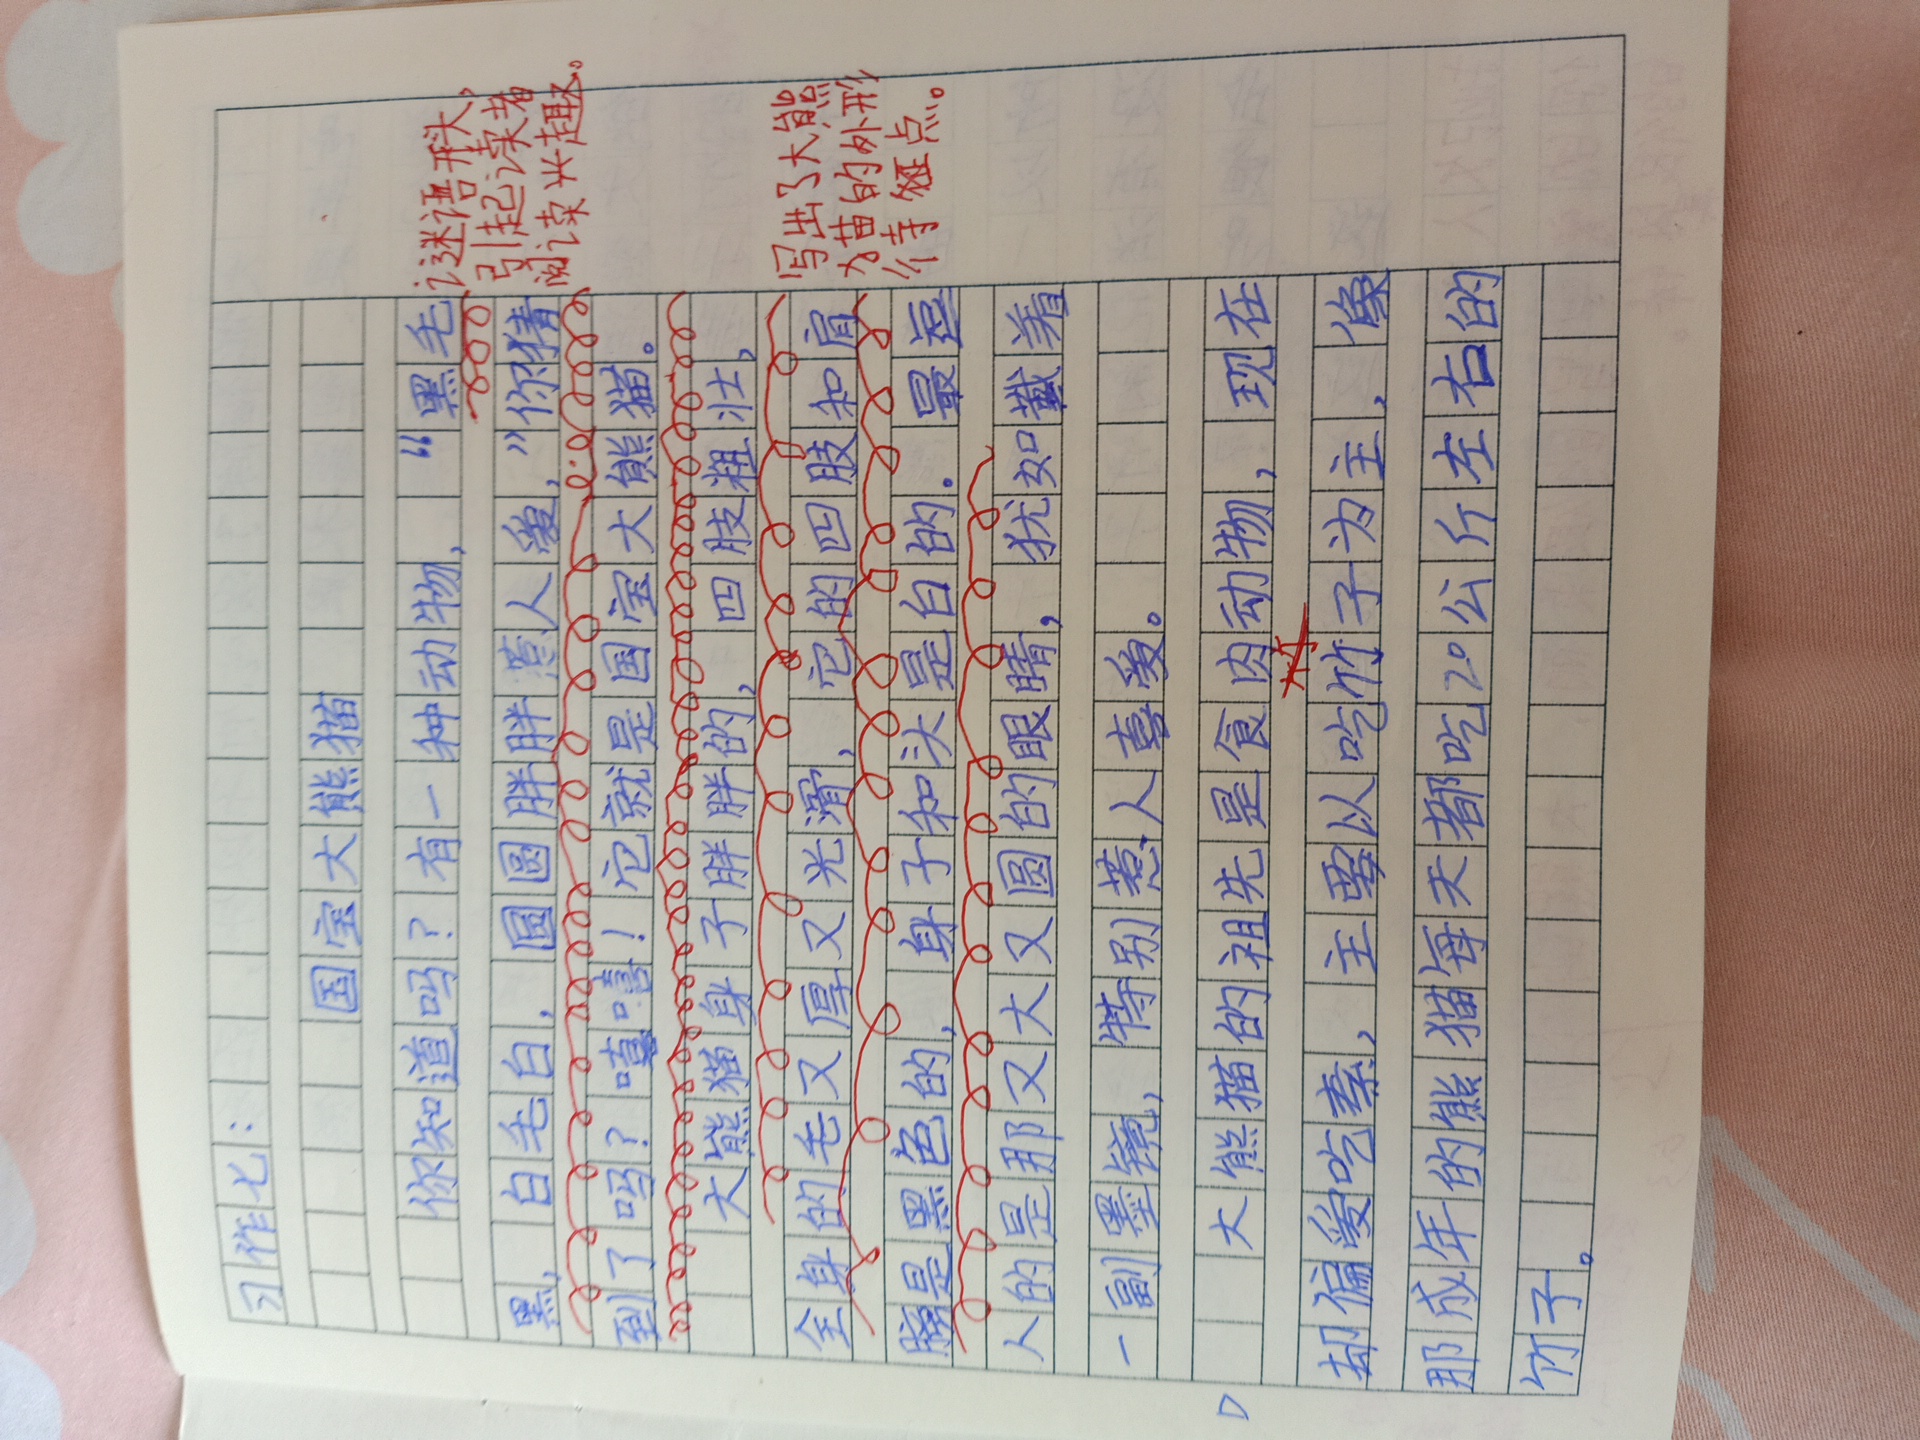 习作七:
国宝大熊猫
你知道吗?有一种动物,“黑毛
黑,白毛白,圆圆胖胖惹人爱,”你猜
到了吗?嘻嘻!它就是国宝大熊猫。
大熊猫身子胖胖的,四肢粗壮,
全身的毛又厚又光滑,它的四肢和肩
膀是黑色的,身子和头是白的.最逗
人的是那又大又圆的眼睛,犹如戴着
一副墨镜,特别惹人喜爱。
大熊猫的祖先是食肉动物,现在
却偏爱吃素,主要以吃竹子为主,像
那成年的熊猫每天都吃20公斤左右的
竹子。
谜语开头,
引起读者
阅读兴趣。
写出了大熊
猫的外形
特点。